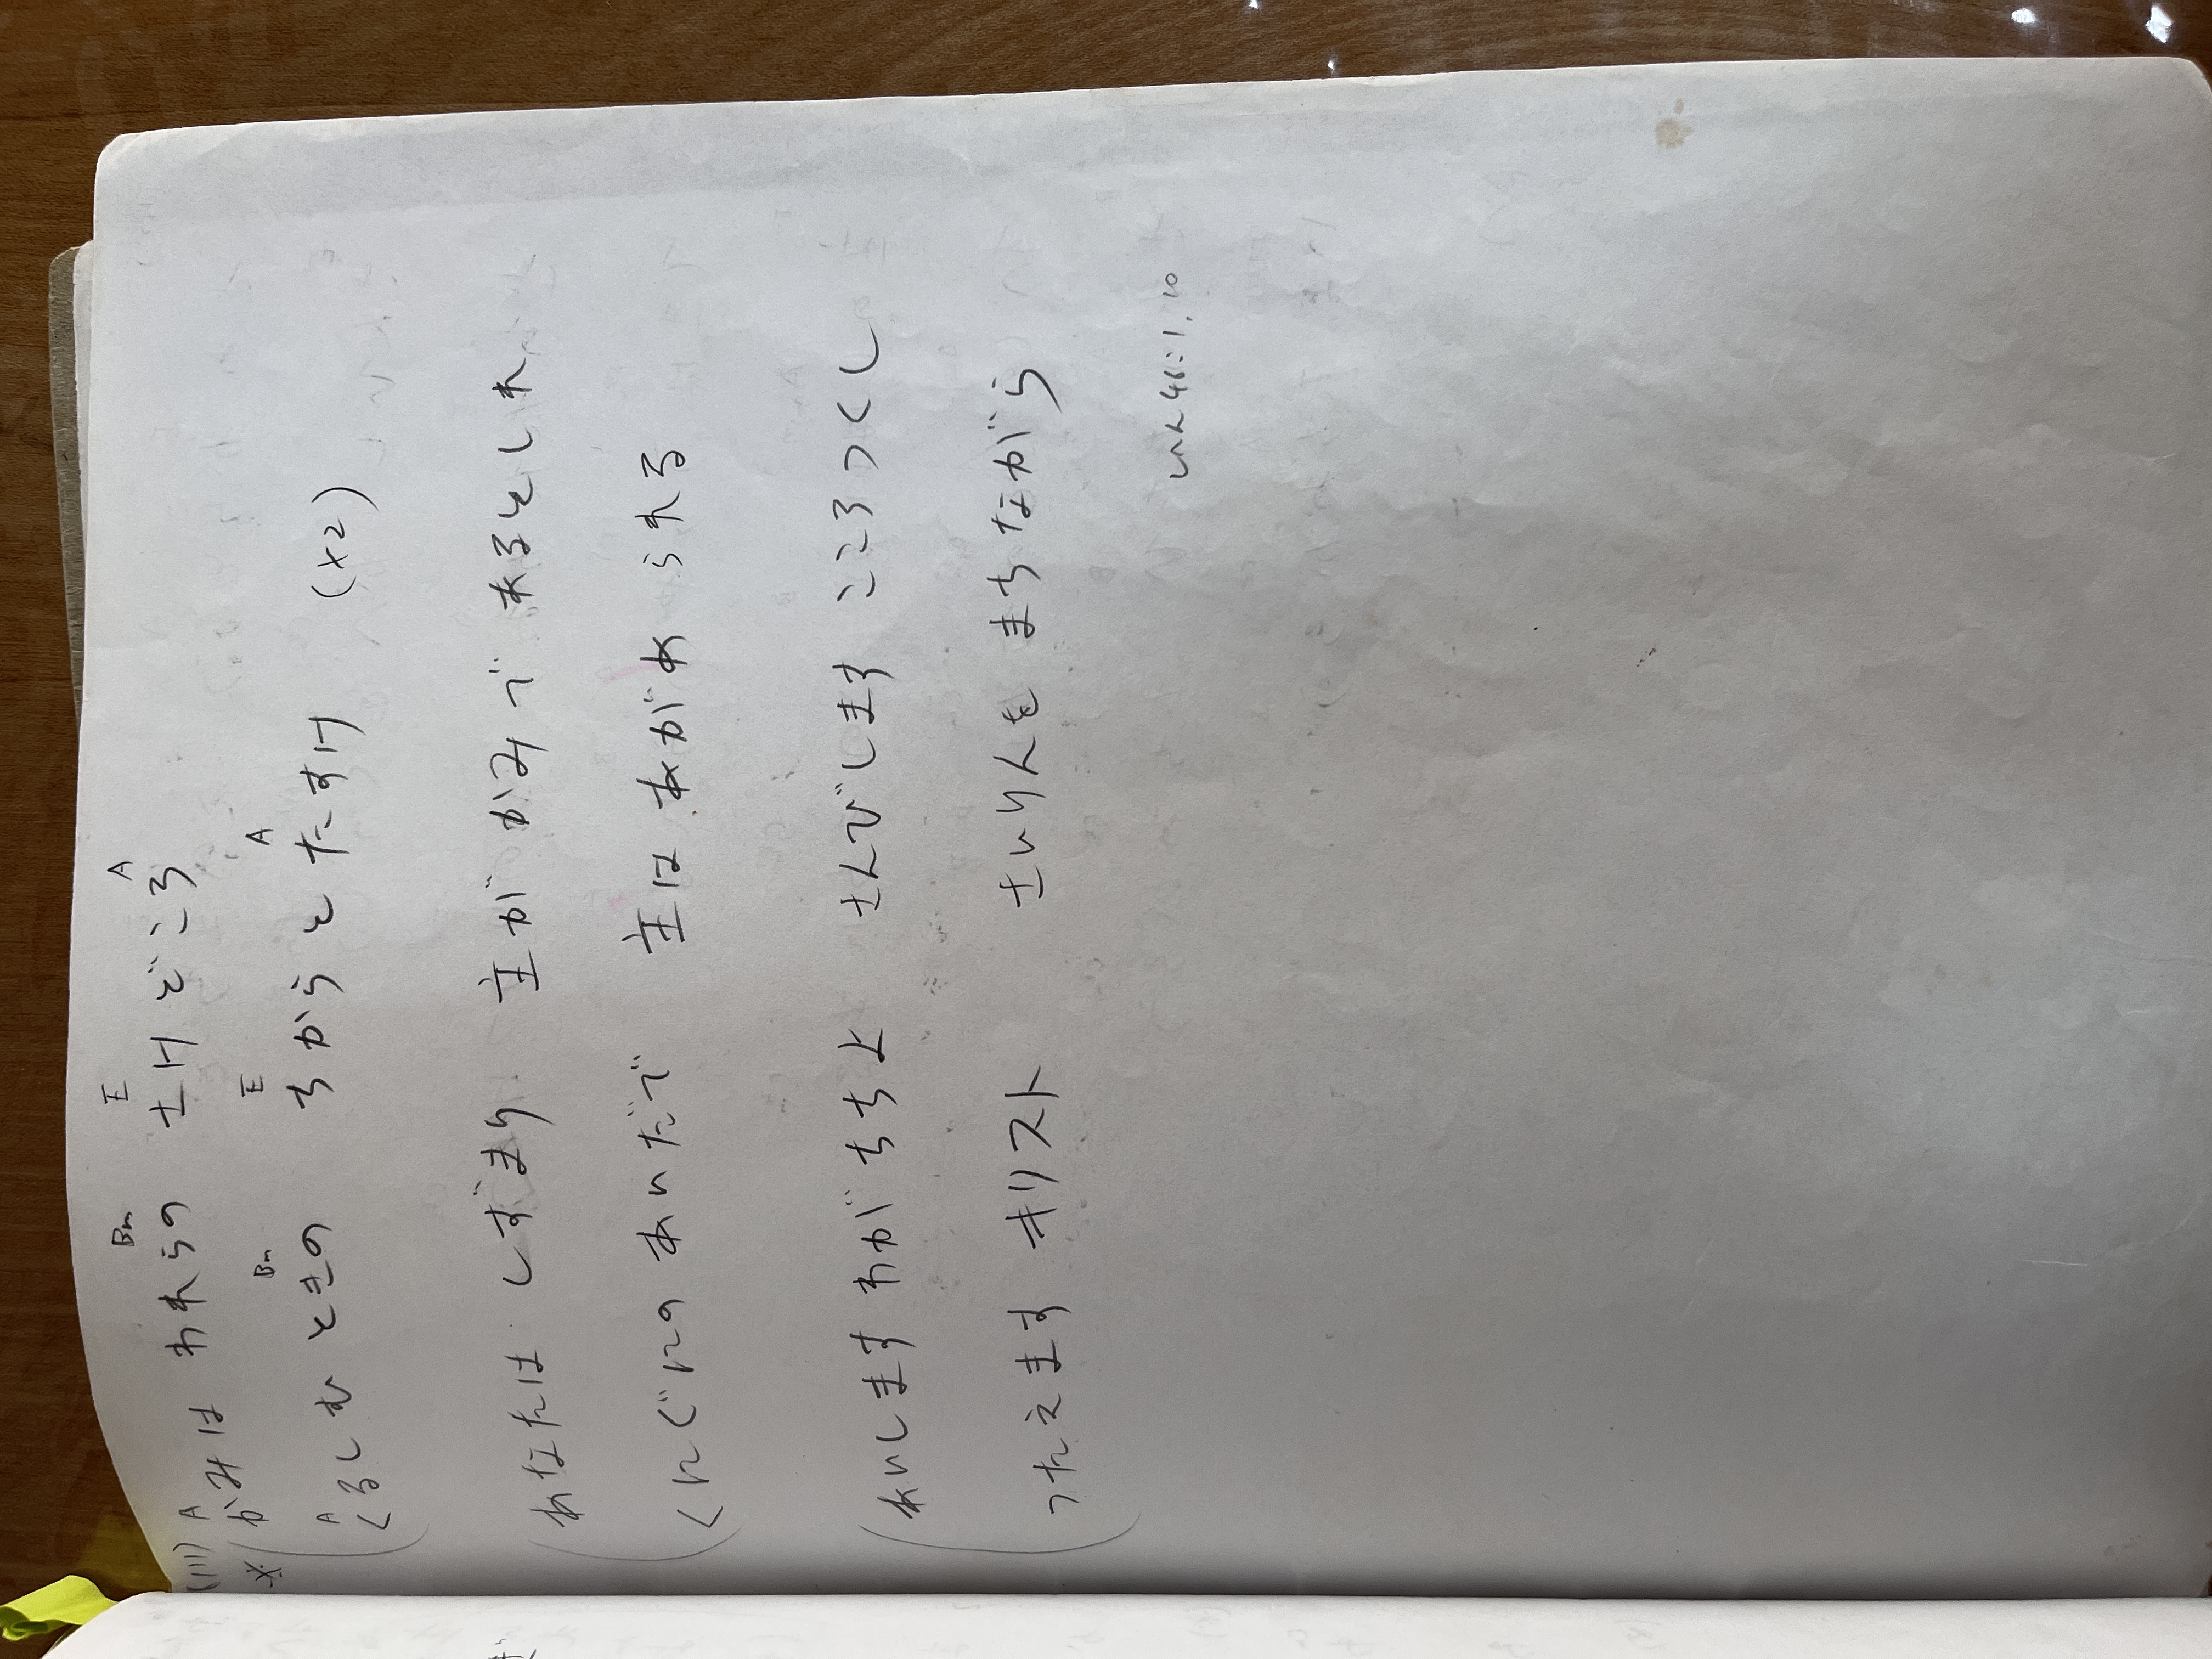 (11) A Bm E A
※ かみは われらの さけどころ
A Bm E A
くるしむ ときの ちからとたすけ (x2)
あなたは しずまり 主が かみで あるとしれ
くにぐにの あいだで 主は あがめ られる
あいします わが ちちよ さんびします こころつくし
つたえます キリスト さいりんを まちながら
しへん 46:1, 10